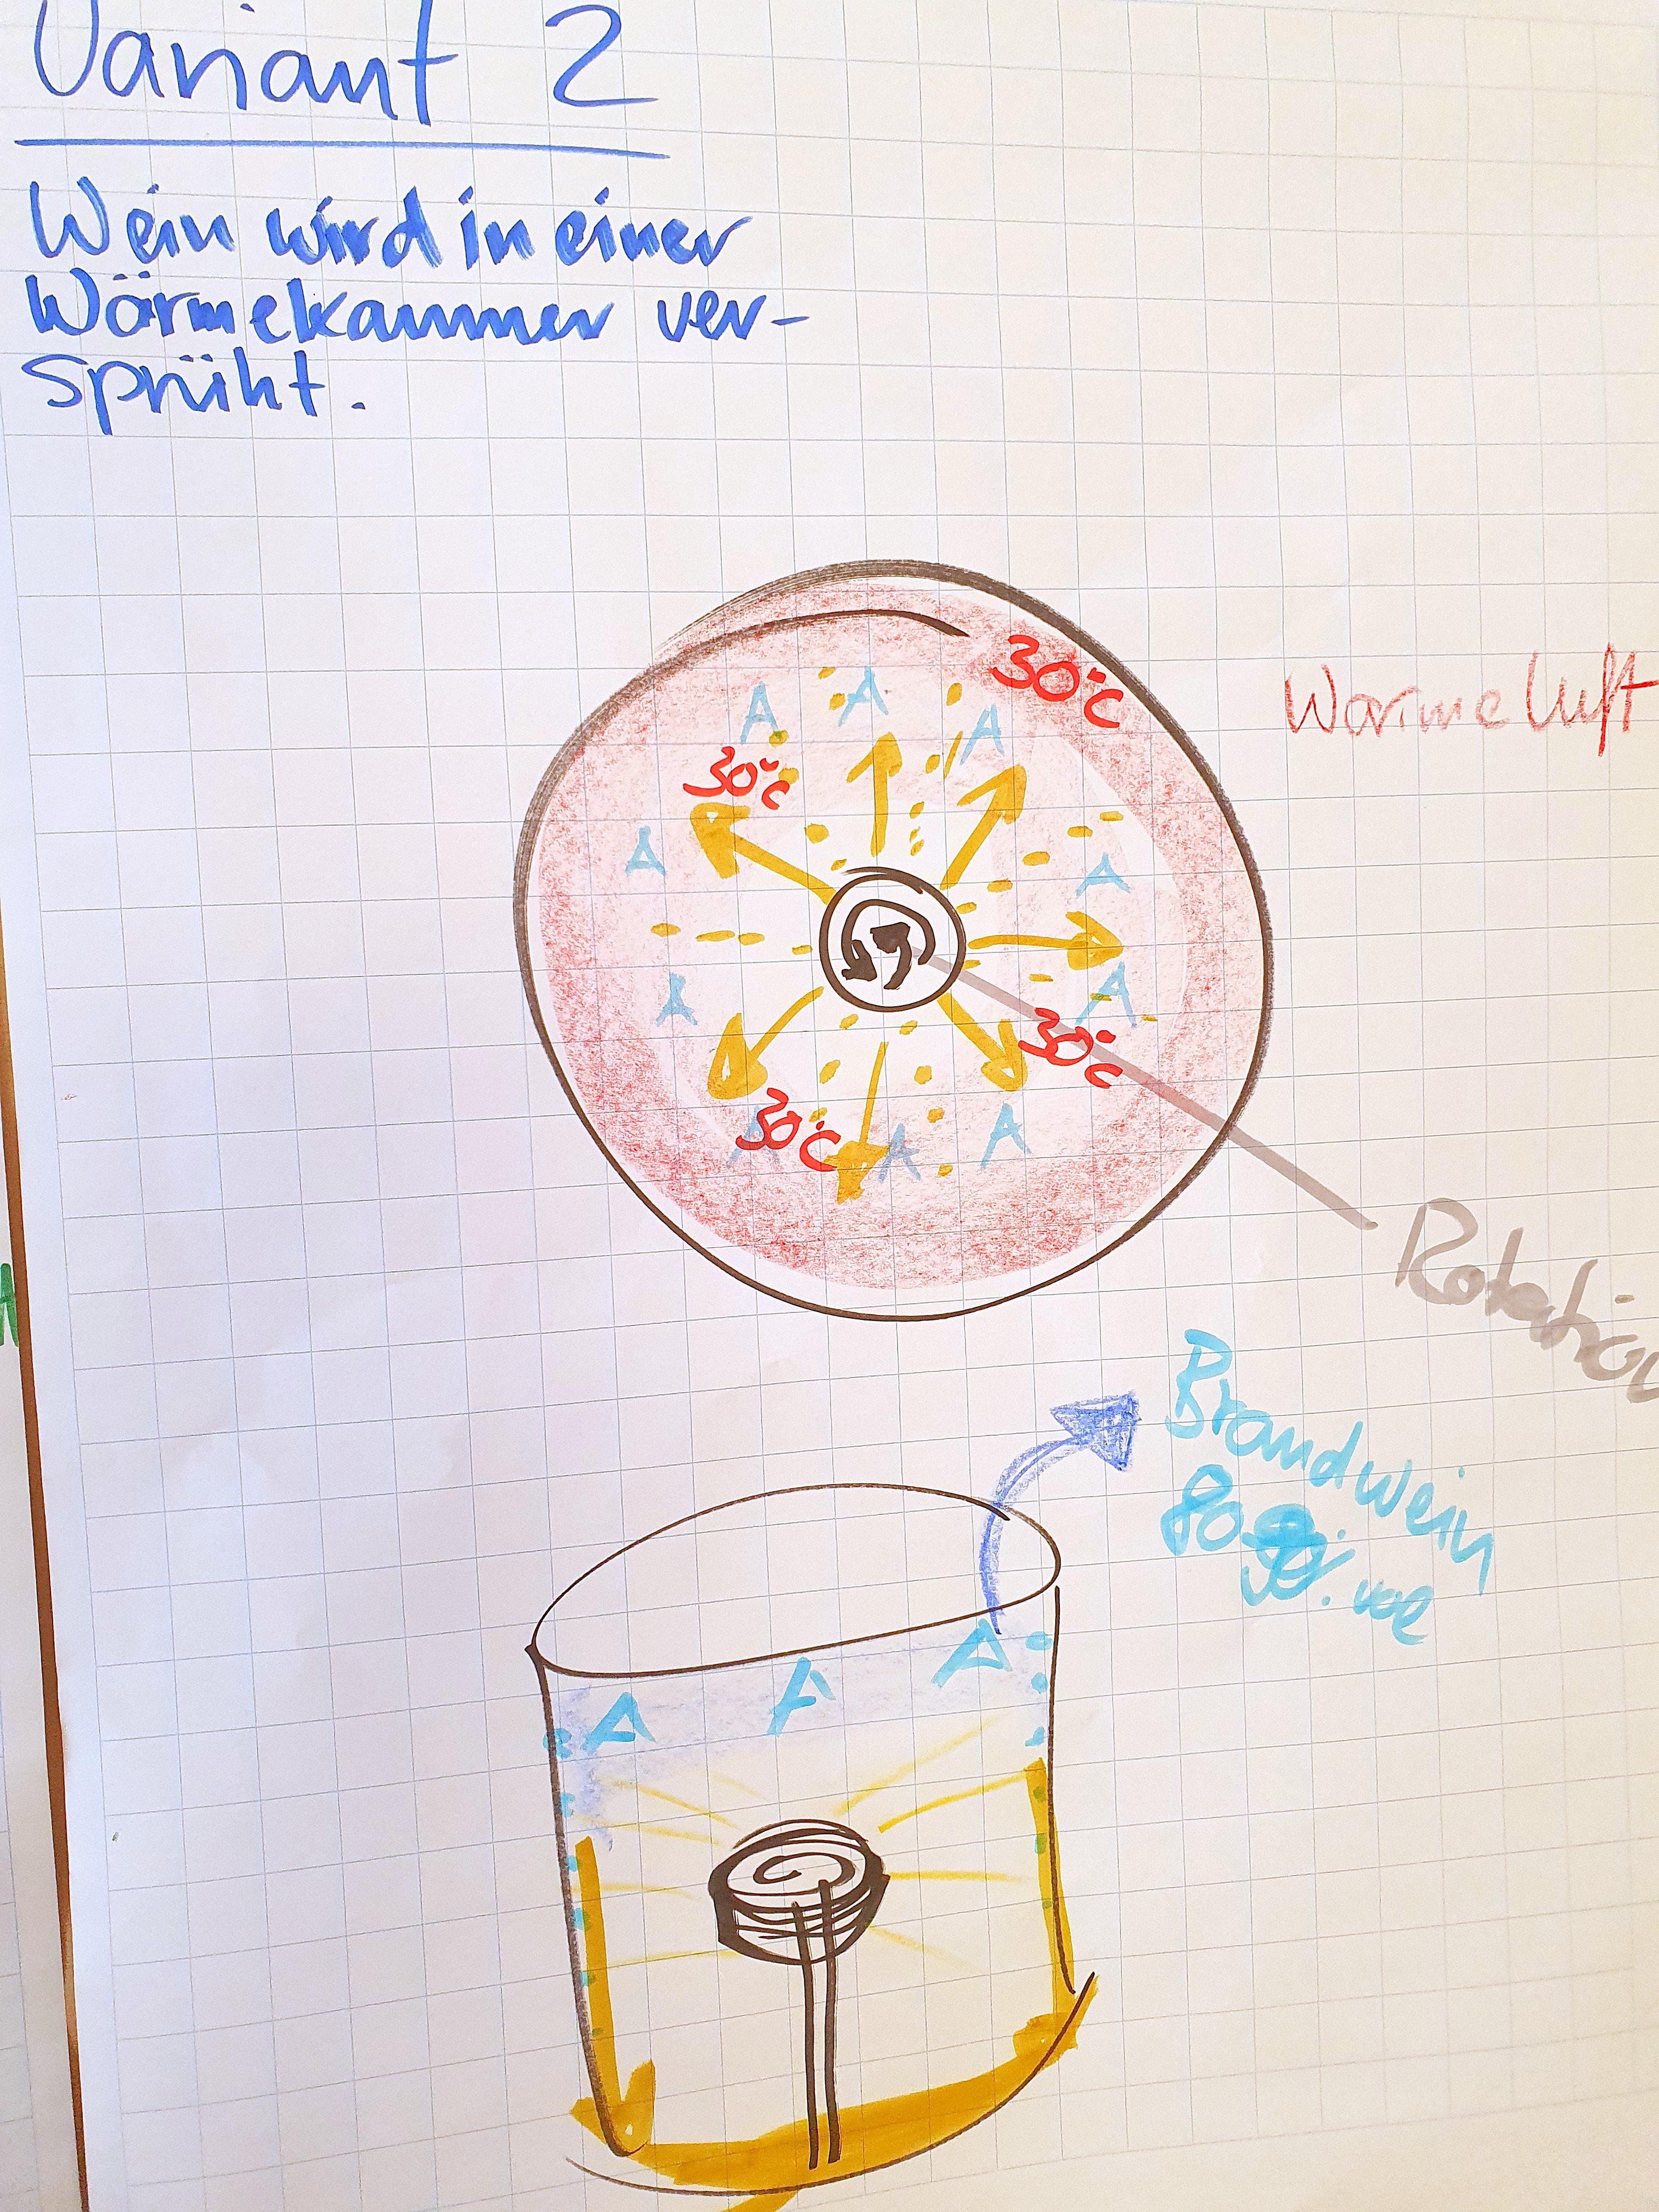 Variant 2
Wein wird in einer
Wärmekammer ver-
sprüht.
30°C
Warme Luft
A A A
30°C
A A
A A
30°C
30°C
A A A
Rotation
Brandwein
80
% vol
A A A